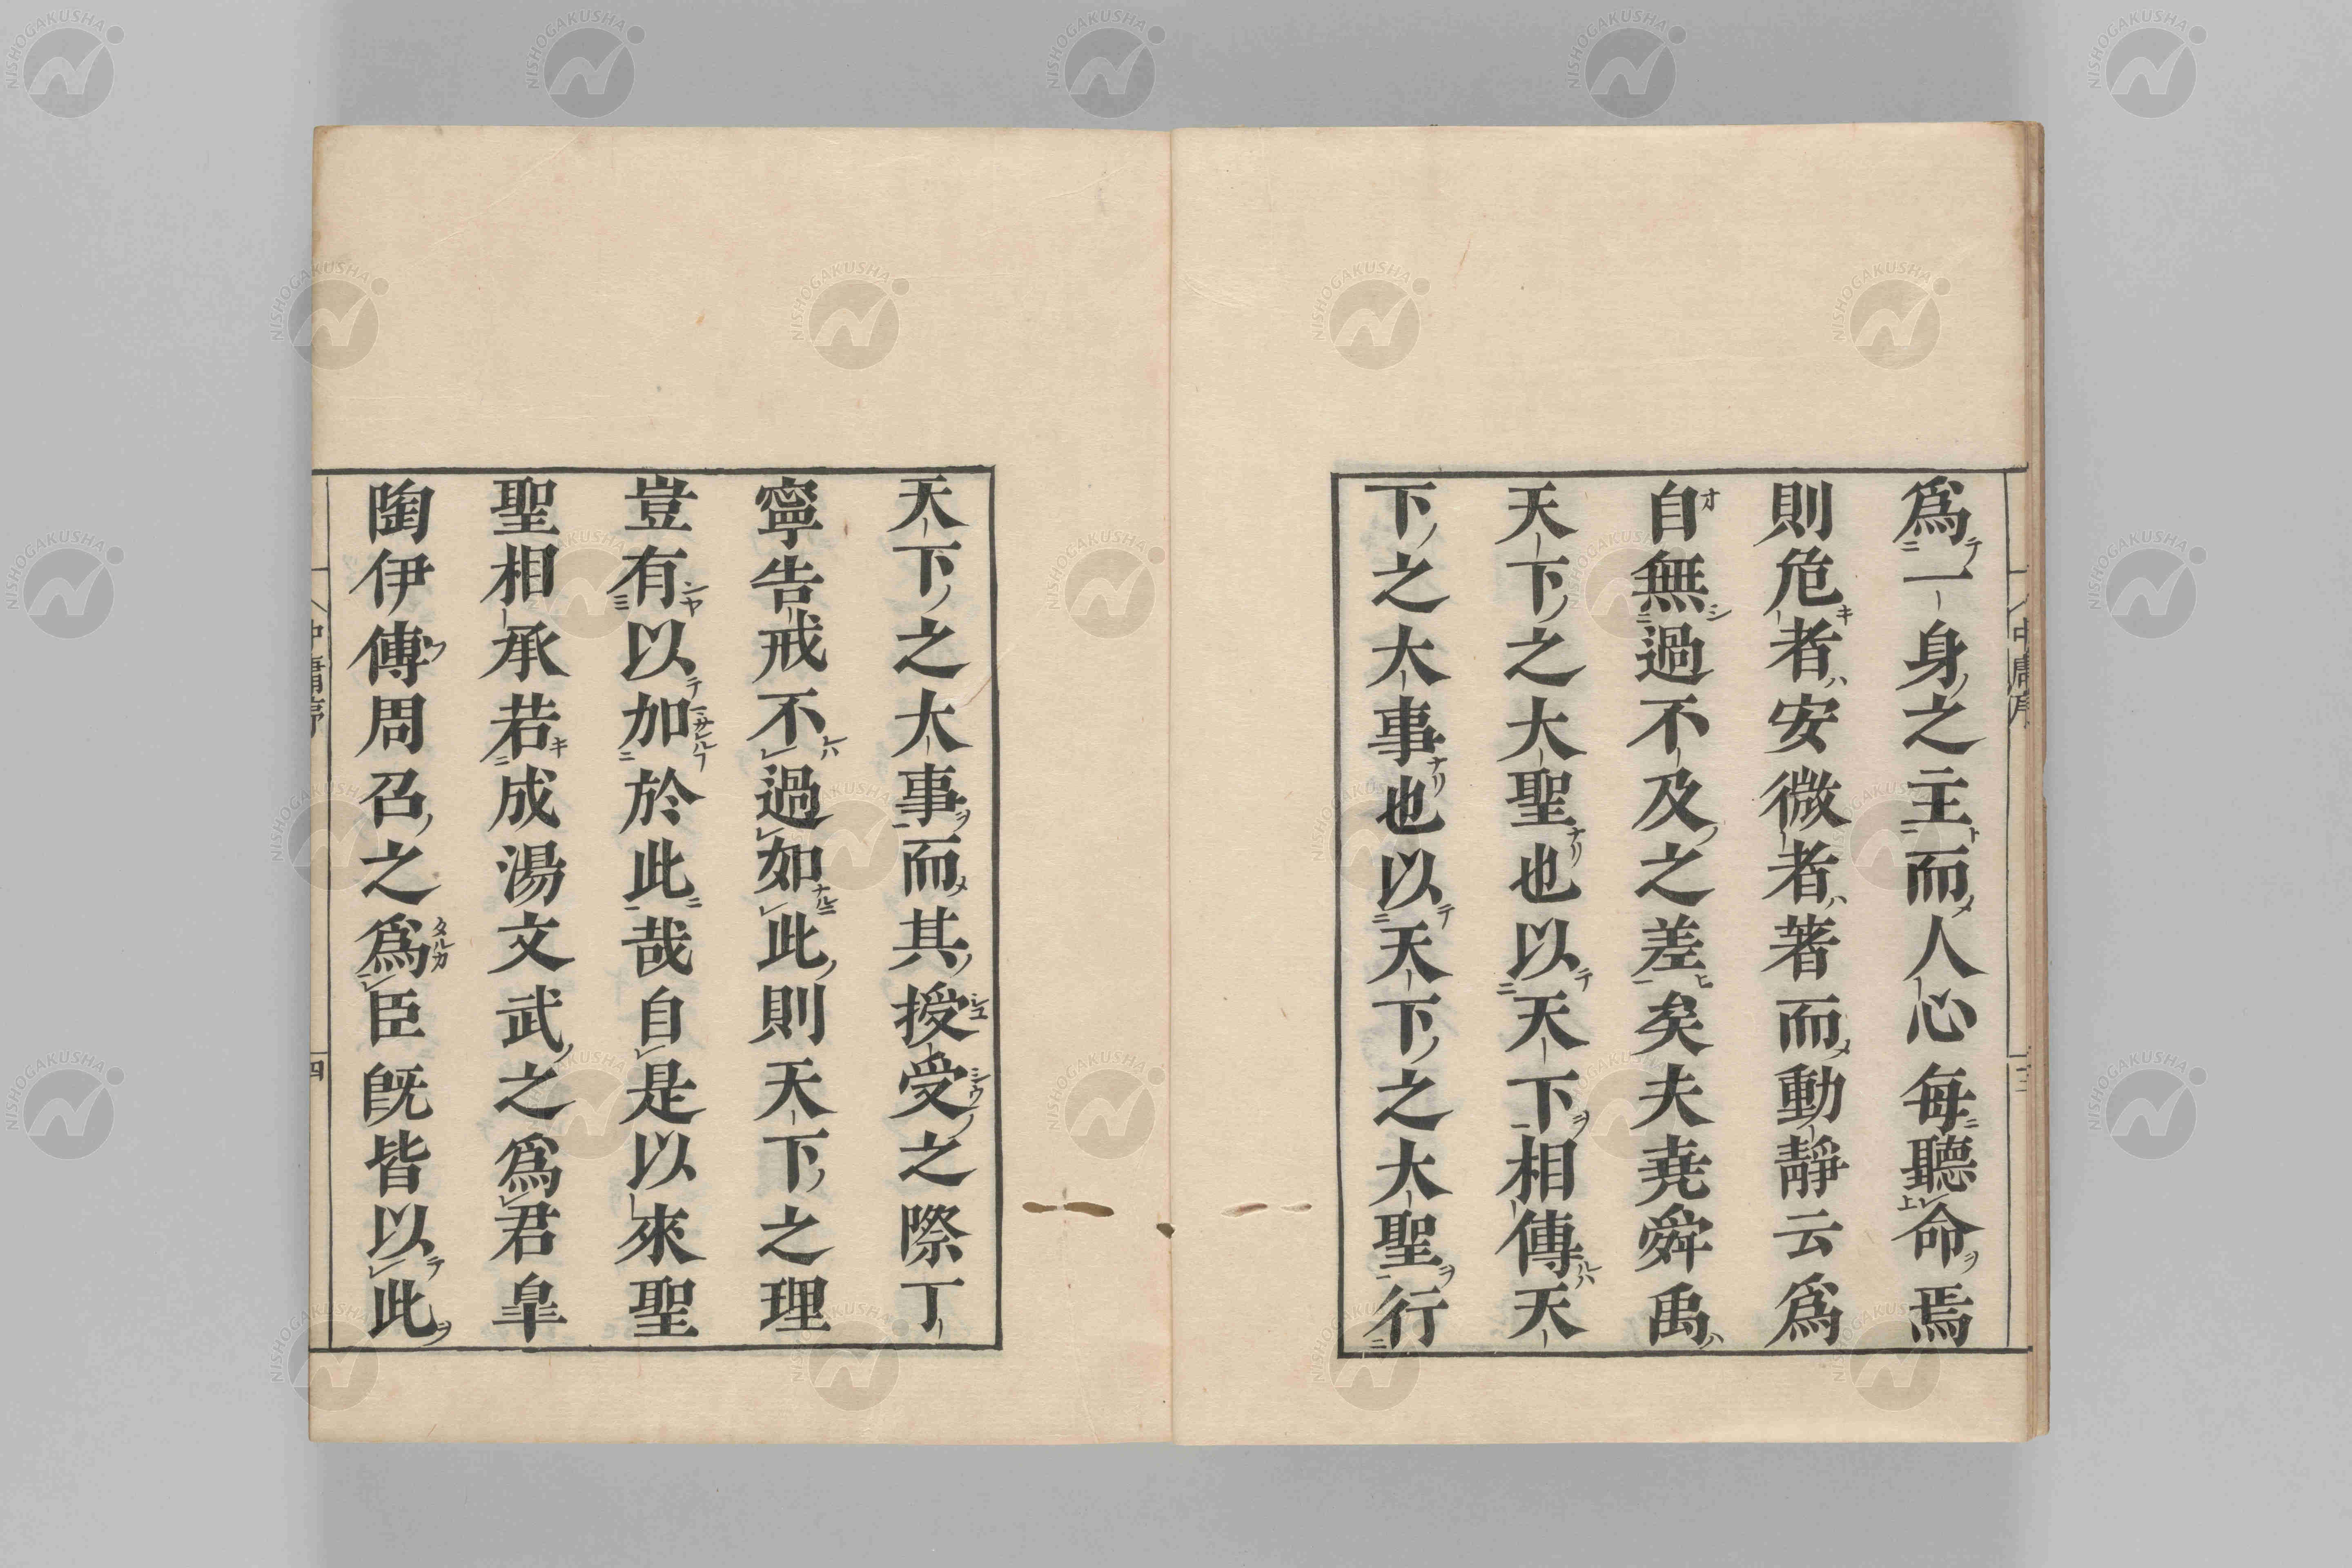 爲一身之主而人心每聽命焉
則危者安微者著而動靜云爲
自無過不及之差矣夫堯舜禹
天下之大聖也以天下相傳天
下之大事也以天下之大聖行
天下之大事而其授受之際丁
寧告戒不過如此則天下之理
豈有以加於此哉自是以來聖
聖相承若成湯文武之爲君皐
陶伊傅周召之爲臣既皆以此
中庸序
四
NISHOGAKUSHA